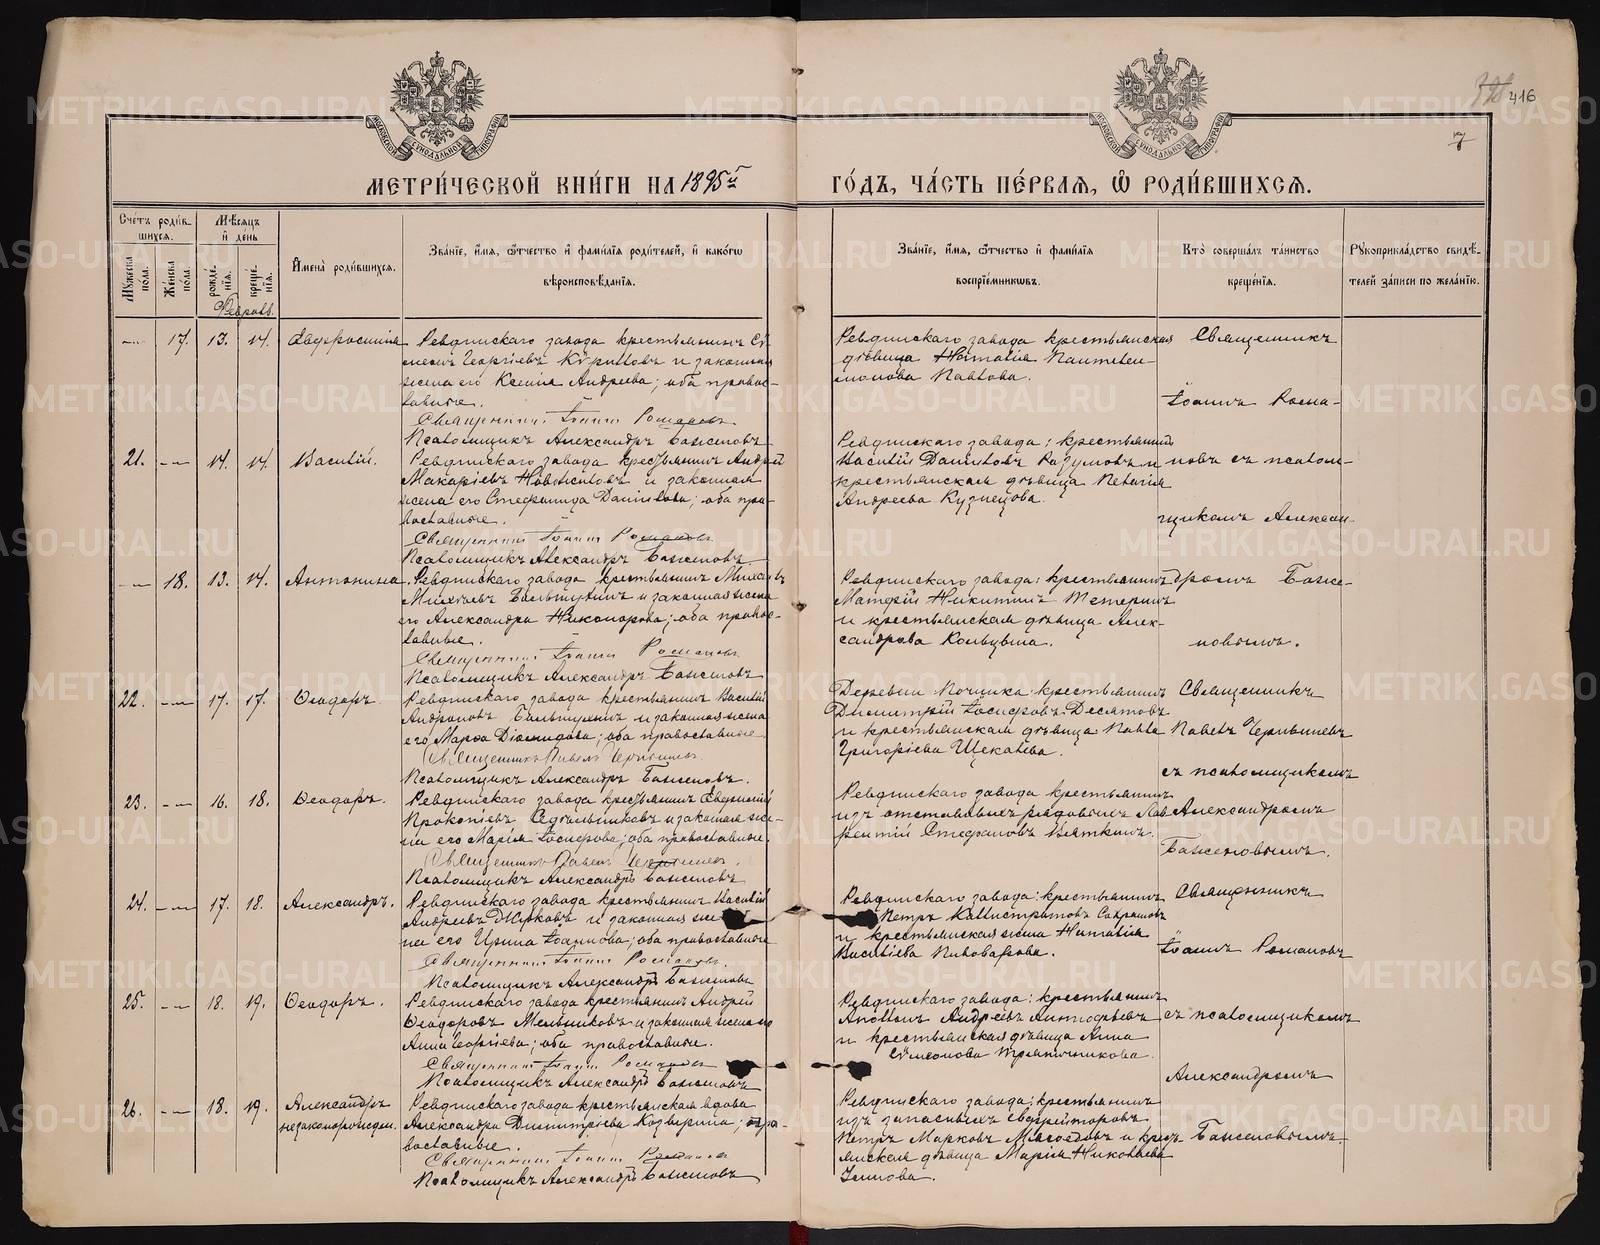 416
7
МЕТРИ́ЧЕСКОЙ КНИ́ГИ НА 1895й ГО́ДЪ, ЧА́СТЬ ПЕ́РВАЯ, Ѡ РОДИ́ВШИХСЯ.
Сче́тъ роди́в-
шихся.
Му́жеска по́ла.
Же́нска по́ла.
Мѣ́сяцъ
и де́нь
рожде́нїя.
креще́нїя.
Февраль.
Имена̀ роди́вшихся.
Зва́нїе, и́мя, ѻ́тчество и фами́лїя роди́телей, и како́гѡ
вѣроисповѣ́данїя.
Зва́нїе, и́мя, ѻ́тчество и фами́лїя
воспрїе́мникѡвъ.
Кто̀ соверша́лъ та́инство
креще́нїя.
Рꙋкоприкла́дство свидѣ́-
телей за́писи по жела́нїю.
17. 13. 14. Евфросинія
Ревдинскаго завода крестьянинъ Сѵ-
меонъ Георгіевъ и законная
жена его Ксенія Андреева; оба право-
славные.
Священникъ Іоаннъ Романовъ
Псаломщикъ Александръ Баженовъ
Ревдинскаго завода крестьянская
дѣвица Наталія Пантелеи-
монова Павлова.
Священникъ
Іоаннъ Рома-
21. 14. 14. Василій.
Ревдинскаго завода крестьянинъ Андрей
Макаріевъ Новоселовъ и законная
жена его Стефанида Данилова; оба пра-
вославные.
Священникъ Іоаннъ Романовъ
Псаломщикъ Александръ Баженовъ
Ревдинскаго завода: крестьянинъ
Василій Даниловъ и
крестьянская дѣвица Пелагія
Андреева Кузнецова.
новъ съ псалом-
щикомъ Алексан-
18. 13. 14. Антонина.
Ревдинскаго завода крестьянинъ Михаилъ
и законная жена
его Александра Никонорова; оба право-
славные.
Священникъ Іоаннъ Романовъ
Псаломщикъ Александръ Баженовъ
Ревдинскаго завода: крестьянинъ
Матѳій Никитинъ Тетеринъ
и крестьянская дѣвица Алек-
сандрова Кольцова.
дромъ Баже-
новымъ.
22. 17. 17. Ѳеодоръ.
Ревдинскаго завода крестьянинъ Василій
Андроновъ и законная жена
его Марѳа Діомидова; оба православные.
Священникъ Павелъ Чернышевъ
Псаломщикъ Александръ Баженовъ.
Деревни Починка крестьянинъ
Димитрій Іосифовъ Десятовъ
и крестьянская дѣвица Павла
Григоріева Щекалева.
Священникъ
Павелъ Чернышевъ
съ псаломщикомъ
23. 16. 18. Ѳеодоръ.
Ревдинскаго завода крестьянинъ Евфимій
Прокопіевъ Сѣдельниковъ и законная же-
на его Марія Іосифова; оба православные.
Священникъ Павелъ Чернышевъ.
Псаломщикъ Александръ Баженовъ
Ревдинскаго завода крестьянинъ
изъ отставныхъ рядовыхъ Лав-
рентій Стефановъ Вяткинъ.
Александромъ
Баженовымъ.
24. 17. 18. Александръ.
Ревдинскаго завода крестьянинъ Василій
Андреевъ Жуковъ и законная же-
на его Ирина Іоаннова; оба православные
Священникъ Іоаннъ Романовъ.
Псаломщикъ Александръ Баженовъ
Ревдинскаго завода: крестьянинъ
Петръ Каллистратовъ
и крестьянская жена Наталія
Василіева Пивоварова.
Священникъ
Іоаннъ Романовъ
25. 18. 19. Ѳеодоръ.
Ревдинскаго завода крестьянинъ Андрей
Ѳеодоровъ Мельниковъ и законная жена его
Анна Георгіева; оба православные.
Священникъ Іоаннъ Романовъ
Псаломщикъ Александръ Баженовъ
Ревдинскаго завода: крестьянинъ
Аполлонъ Андреевъ
и крестьянская дѣвица Анна
Сѵмеонова Тряпичникова.
съ псаломщикомъ
Александромъ
26. 18. 19. Александръ
незаконорожден.
Ревдинскаго завода крестьянская вдова
Александра Димитріева Козырина; пра-
вославные.
Священникъ Іоаннъ Романовъ
Псаломщикъ Александръ Баженовъ
Ревдинскаго завода: крестьянинъ
изъ запасныхъ ефрейторовъ
Петръ Марковъ Мясоѣдовъ и кресть-
янская дѣвица Марія Николаева
Баженовымъ.